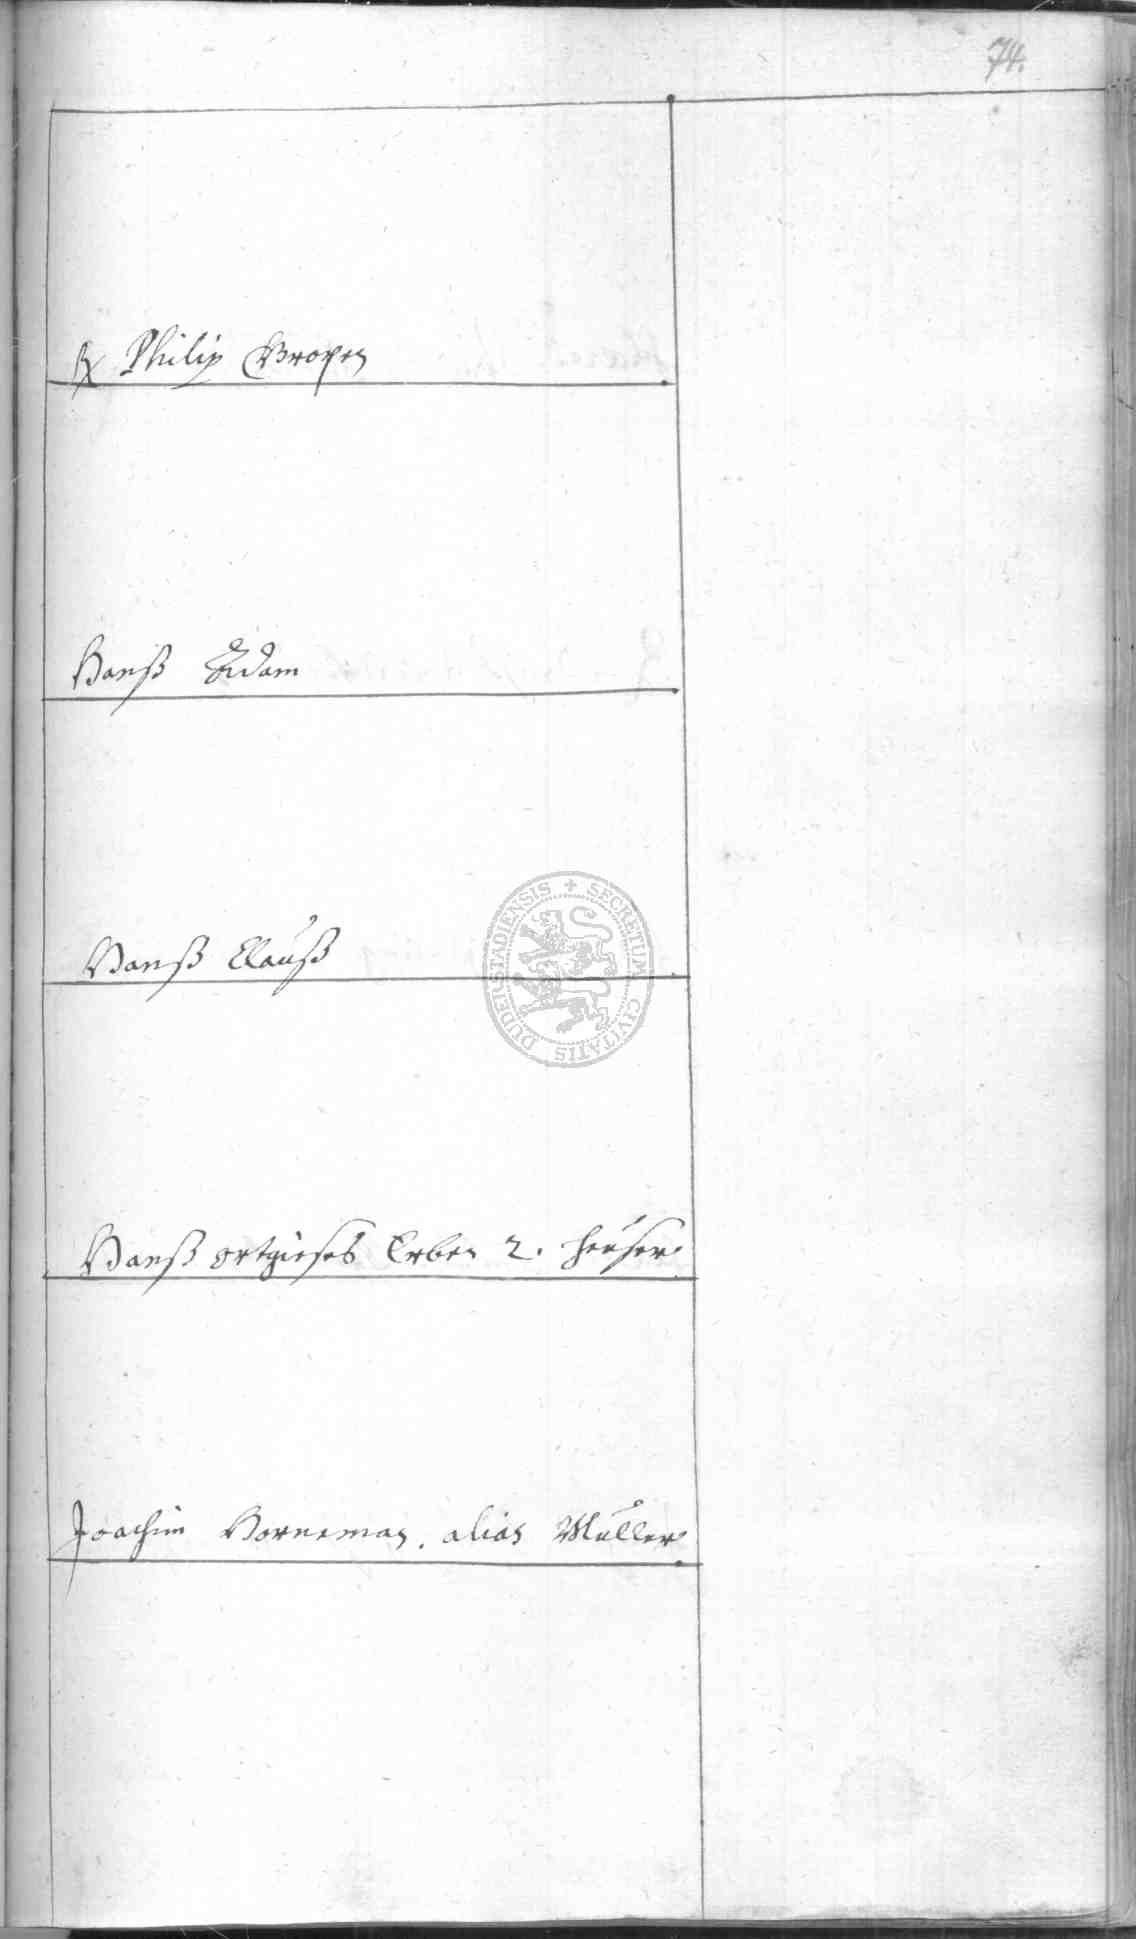 74.
Philip
Hanß Adam
Hanß Clauß
Hanß ortgieses Erben 2. heuser
Joachim Borneman. alias Müller
SECRETUM CIVITATIS DUDERSTADIENSIS